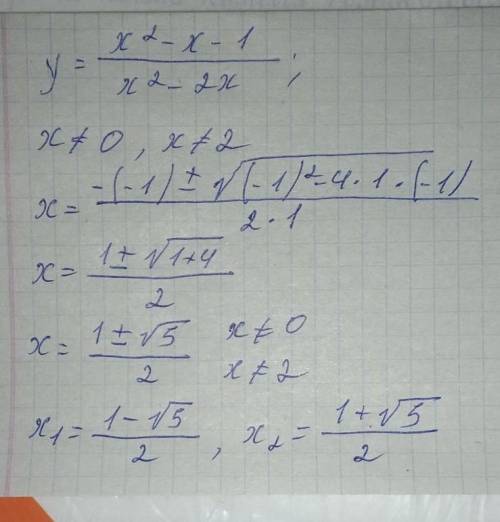 y = (x² - x - 1)/(x² - 2x) ;
x ≠ 0 , x ≠ 2
x = (-(-1) ± √((-1)² - 4 · 1 · (-1)))/(2 · 1)
x = (1 ± √(1+4))/2
x = (1 ± √5)/2 x ≠ 0
x ≠ 2
x₁ = (1 - √5)/2 , x₂ = (1 + √5)/2